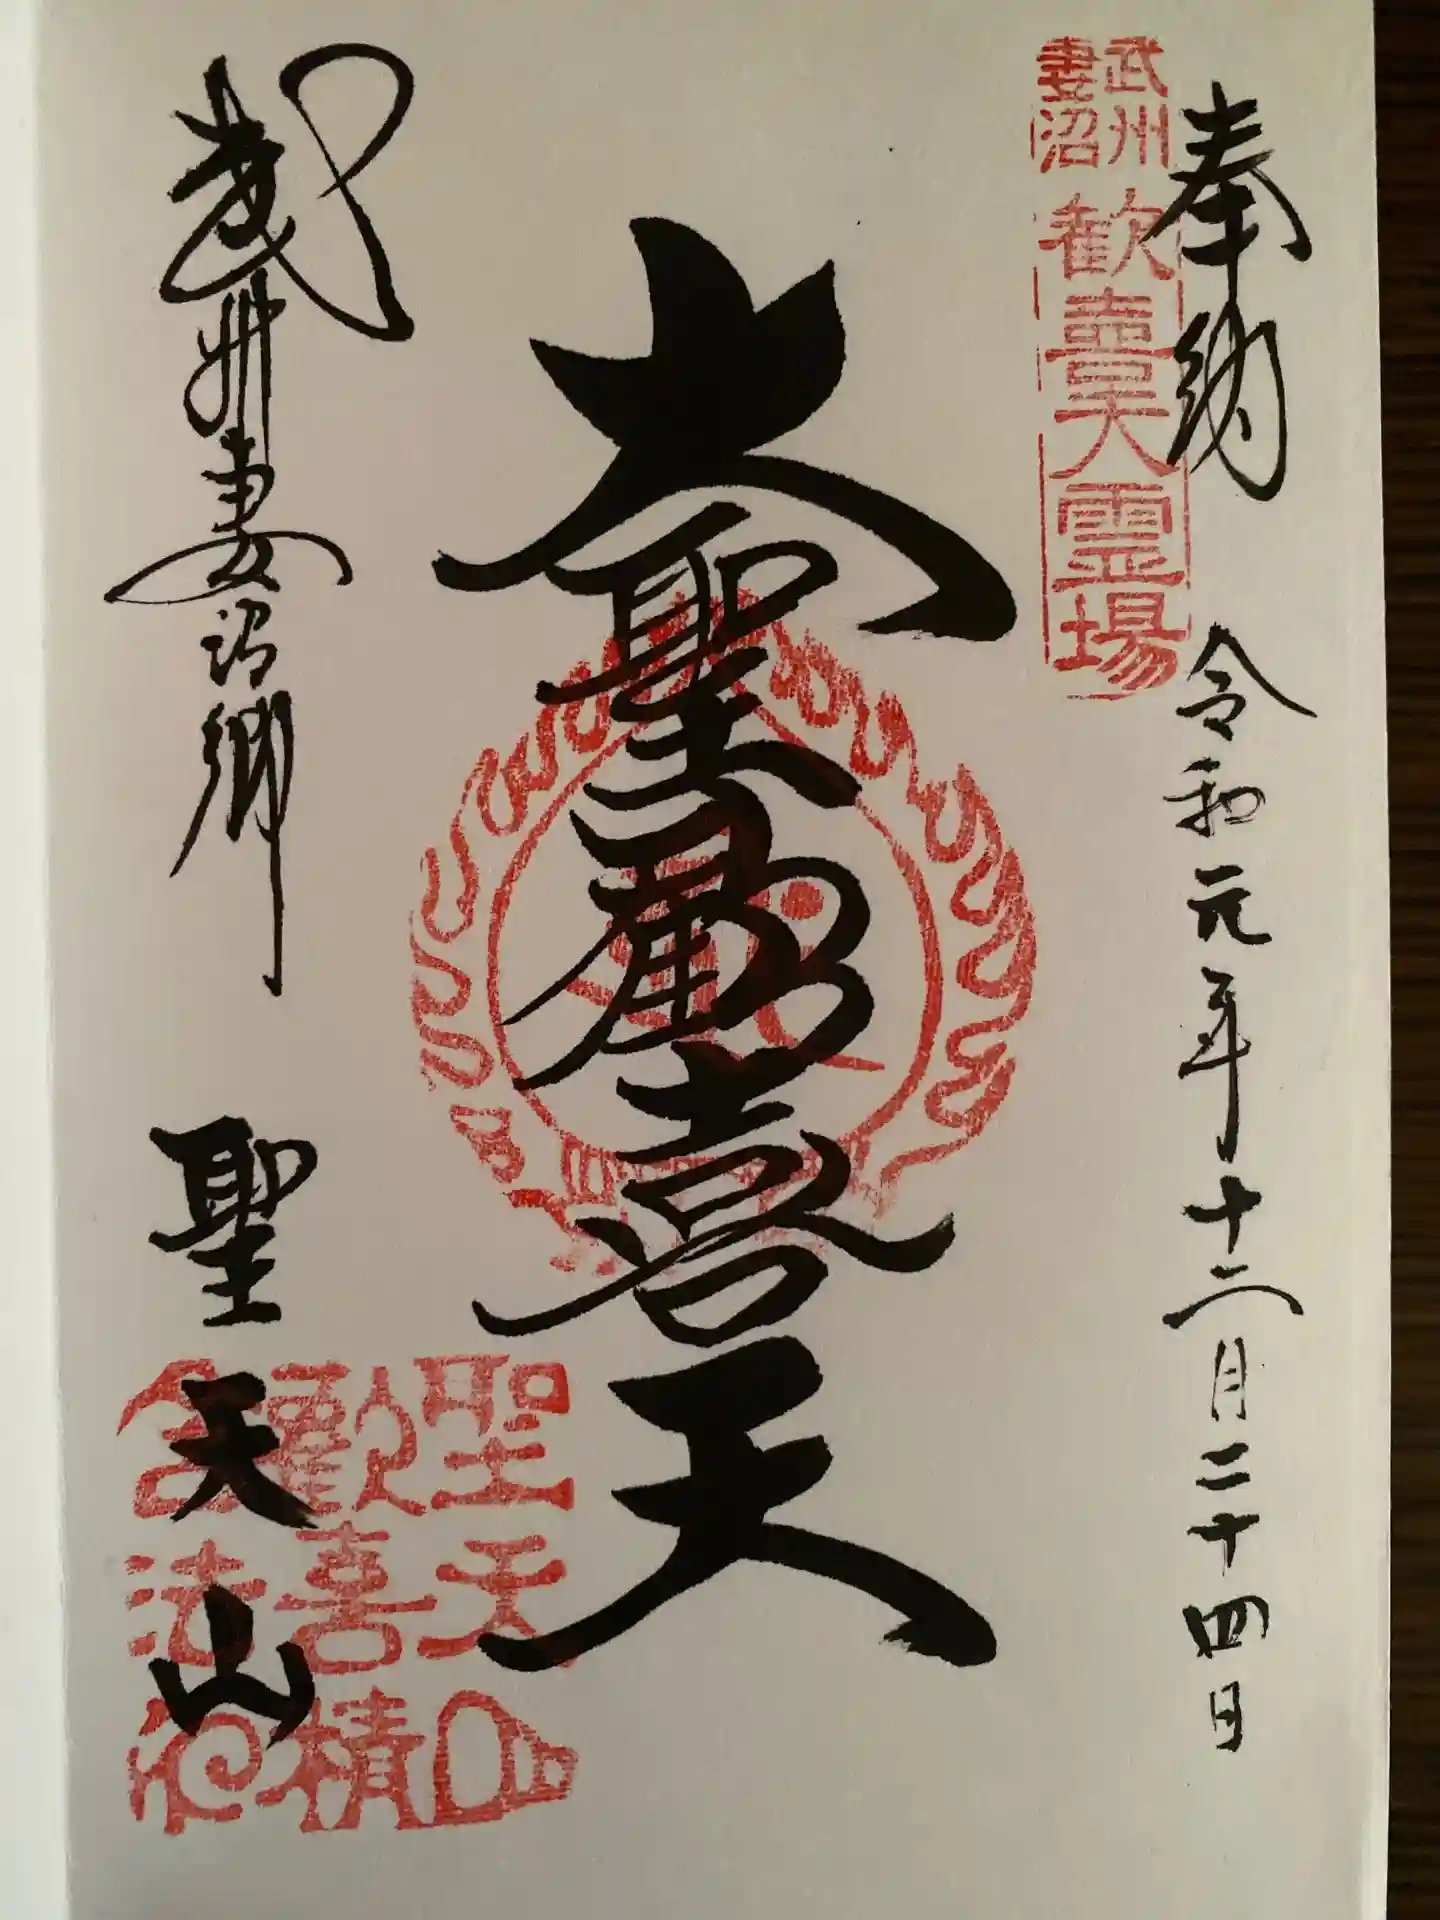 奉納
令和元年十二月二十四日
武州
妻沼
歓喜天霊場
大聖歓喜天
武州妻沼郷
聖天山
聖天山
歓喜